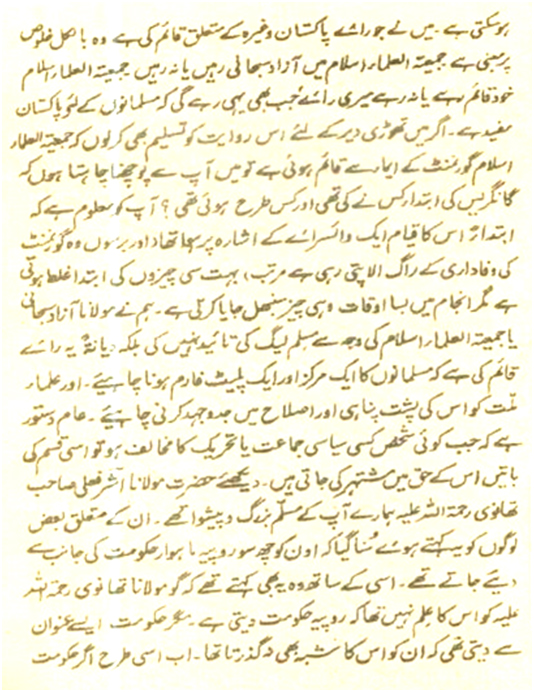 ہوسکتی ہے۔ میں نے جو رائے پاکستان وغیرہ کے متعلق قائم کی ہے وہ بالکل خلوص
پر مبنی ہے جمعیۃ العلماء اسلام میں آزاد سبحانی رہیں یا نہ رہیں جمعیۃ العلماء اسلام
خود قائم رہے یا نہ رہے میری رائے جب بھی یہی رہے گی کہ مسلمانوں کے لئے پاکستان
مفید ہے۔ اگر میں تھوڑی دیر کے لئے اس روایت کو تسلیم بھی کر لوں کہ جمعیۃ العلماء
اسلام گورنمنٹ کے ایماء سے قائم ہوئی ہے تو میں آپ سے پوچھنا چاہتا ہوں کہ
کانگریس کی ابتدا کس نے کی تھی اور کس طرح ہوئی تھی؟ آپ کو معلوم ہے کہ
ابتداءً اس کا قیام ایک وائسرائے کے اشارہ پر ہوا تھا اور برسوں وہ گورنمنٹ
کی وفاداری کے راگ الاپتی رہی ہے مرتب، بہت سی چیزوں کی ابتدا غلط ہوتی
ہے مگر انجام میں بسا اوقات وہی چیز سنبھل جایا کرتی ہے۔ ہم نے مولانا آزاد سبحانی
یا جمعیۃ العلماء اسلام کی وجہ سے مسلم لیگ کی تائید نہیں کی بلکہ دیانۃً یہ رائے
قائم کی ہے کہ مسلمانوں کا ایک مرکز اور ایک پلیٹ فارم ہونا چاہیئے۔ اور علماء
ملت کو اس کی پشت پناہی اور اصلاح میں جدوجہد کرنی چاہیئے۔ عام دستور
ہے کہ جب کوئی شخص کسی سیاسی جماعت یا تحریک کا مخالف ہو تو اسی قسم کی
باتیں اس کے حق میں مشتہر کی جاتی ہیں۔ دیکھئے حضرت مولانا اشرفعلی صاحب
تھانوی رحمۃ اللہ علیہ ہمارے آپ کے مسلم بزرگ و پیشوا تھے۔ ان کے متعلق بعض
لوگوں کو یہ کہتے ہوئے سُنا گیا کہ اون کو چھ سو روپیہ ماہوار حکومت کی جانب سے
دیئے جاتے تھے۔ اسی کے ساتھ وہ یہ بھی کہتے تھے کہ گو مولانا تھانوی رحمۃ اللہ
علیہ کو اس کا علم نہیں تھا کہ روپیہ حکومت دیتی ہے۔ مگر حکومت ایسے عنوان
سے دیتی تھی کہ ان کو اس کا شبہ بھی نہ گذرتا تھا۔ اب اسی طرح اگر حکومت